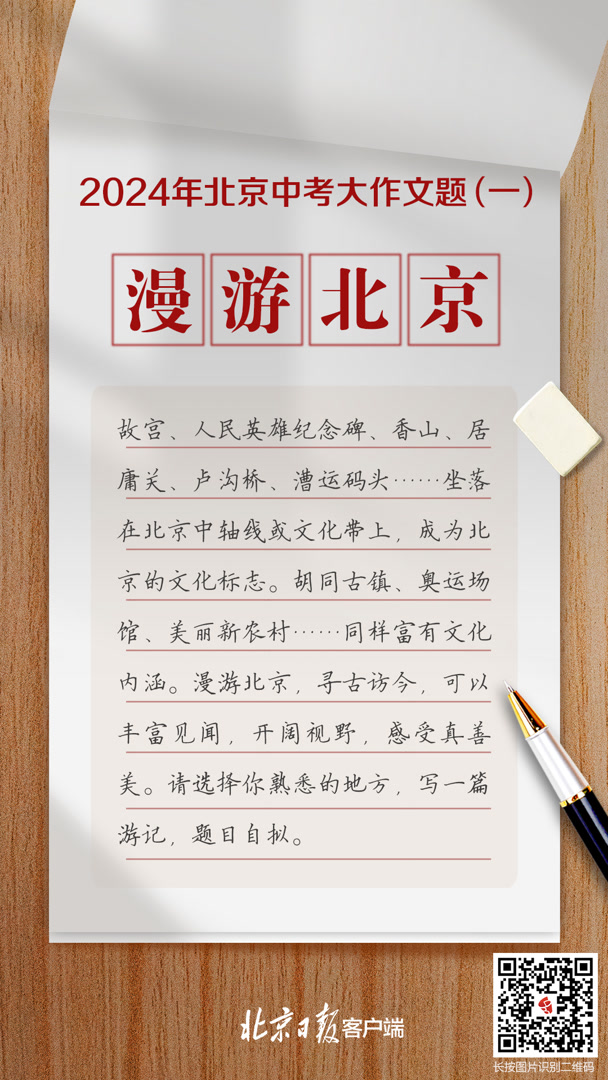 2024年北京中考大作文题（一）
漫游北京
故宫、人民英雄纪念碑、香山、居
庸关、卢沟桥、漕运码头……坐落
在北京中轴线或文化带上，成为北
京的文化标志。胡同古镇、奥运场
馆、美丽新农村……同样富有文化
内涵。漫游北京，寻古访今，可以
丰富见闻，开阔视野，感受真善
美。请选择你熟悉的地方，写一篇
游记，题目自拟。
北京日报客户端
长按图片识别二维码